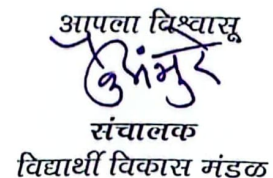 आपला विश्वासू
संचालक
विद्यार्थी विकास मंडळ